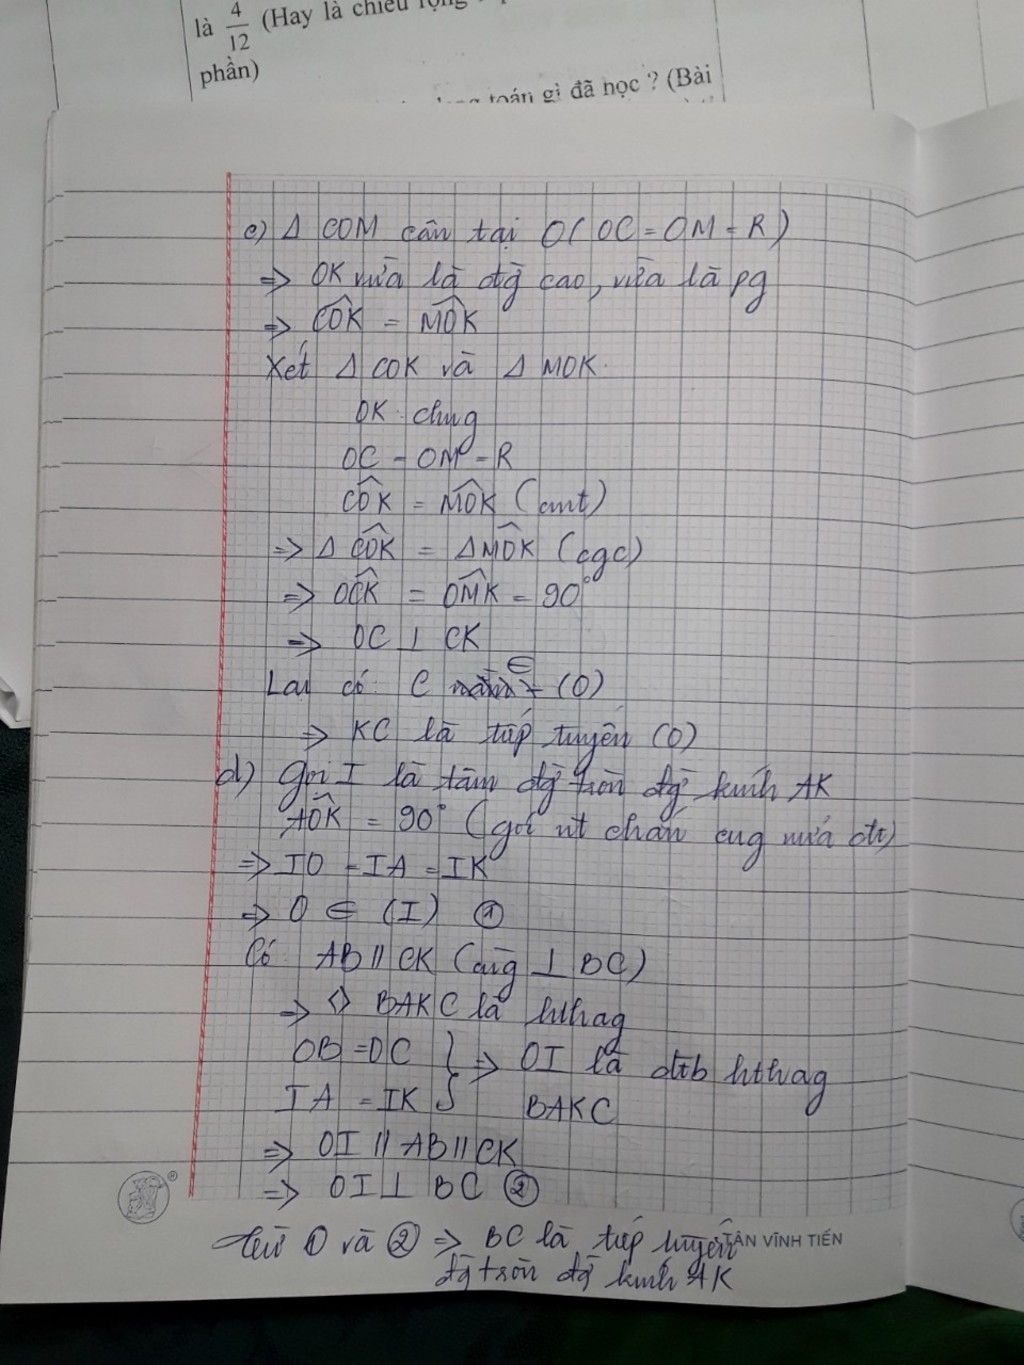 là 4/12 (Hay là chiều rộng
phần)
toán gì đã học ? (Bài
c) Δ COM cân tại O( OC = OM = R)
=> OK vừa là đg cao, vừa là pg
=> COK = MOK
Xét Δ COK và Δ MOK
OK chug
OC = OM = R
COK = MOK (cmt)
=> Δ COK = ΔMOK (cgc)
=> OCK = OMK = 90°
=> OC ⊥ CK
Lại có: C ∈ (O)
=> KC là tiếp tuyến (O)
d) Gọi I là tâm đg tròn đg kính AK
AOK = 90° (góc nt chắn cug nửa đt)
=> IO = IA = IK
=> O ∈ (I) ①
Có: AB // CK (cùg ⊥ BC)
=> ◊ BAKC là hthag
OB = OC } => OI là đtb hthag
IA = IK } BAKC
=> OI // AB // CK
=> OI ⊥ BC ②
từ ① và ② => BC là tiếp tuyến
TÂN VĨNH TIẾN
đg tròn đg kính AK